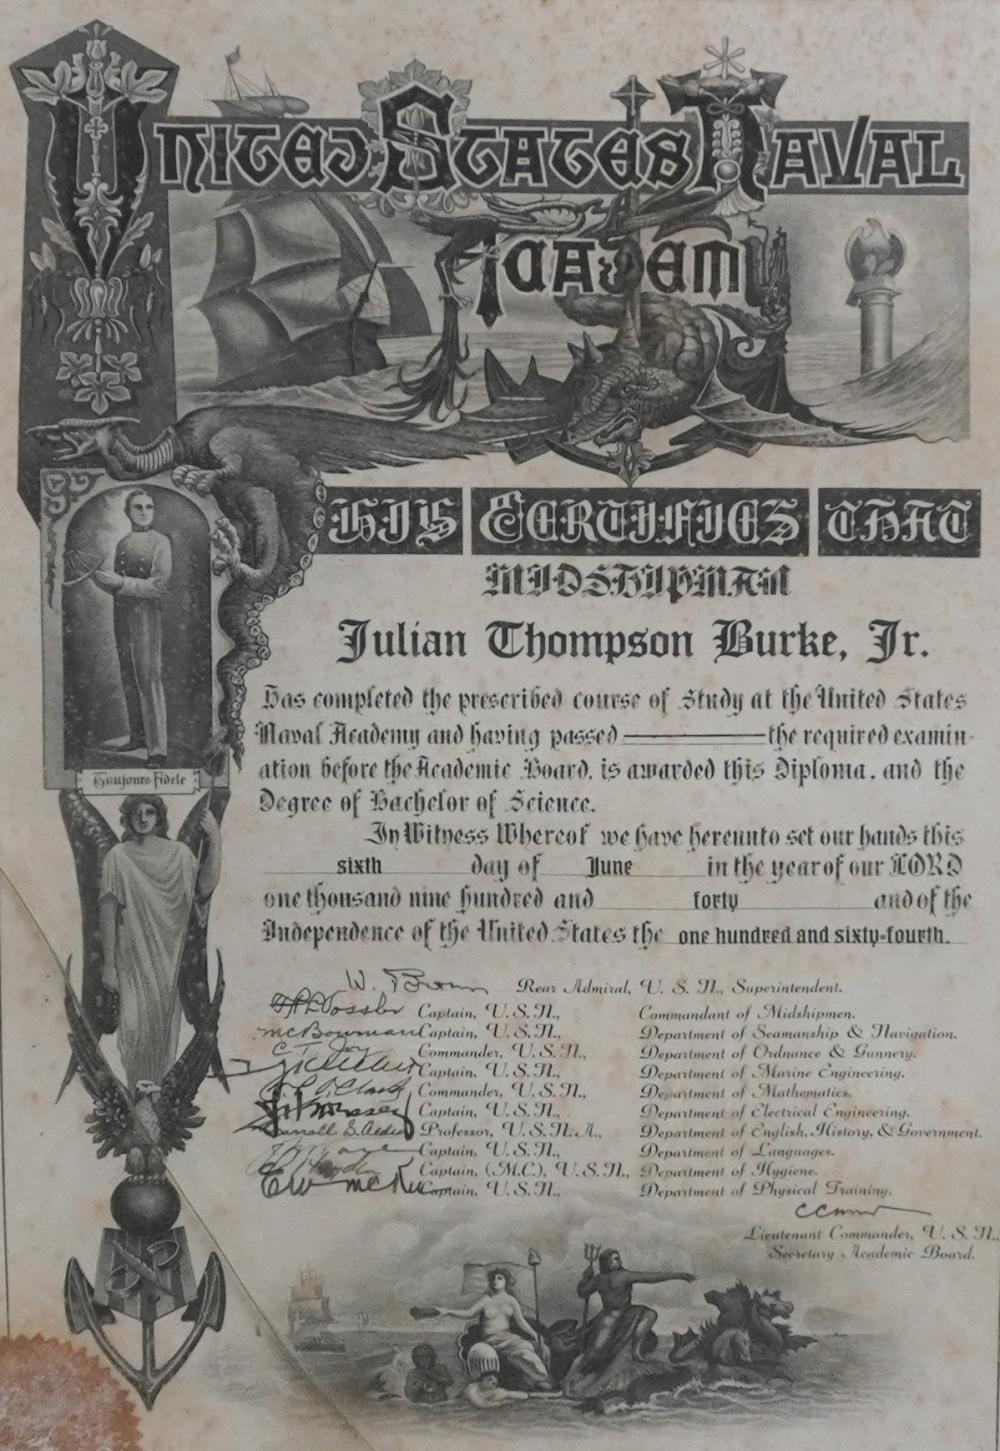 United States Naval
Academy
This Certifies that
Midshipman
Julian Thompson Burke, Jr.
Has completed the prescribed course of Study at the United States
Naval Academy and having passed the required examin-
ation before the Academic Board, is awarded this Diploma, and the
Degree of Bachelor of Science.
In Witness Whereof we have hereunto set our hands this
sixth day of June in the year of our LORD
one thousand nine hundred and forty and of the
Independence of the United States the one hundred and sixty-fourth.
Toujours Fidele
W. Brown Rear Admiral, U. S. N., Superintendent.
Captain, U. S. N., Commandant of Midshipmen.
Captain, U. S. N., Department of Seamanship & Navigation.
Commander, U. S. N., Department of Ordnance & Gunnery.
Captain, U. S. N., Department of Marine Engineering.
Commander, U. S. N., Department of Mathematics.
Captain, U. S. N., Department of Electrical Engineering.
Professor, U. S. N. A., Department of English, History, & Government.
Captain, U. S. N., Department of Languages.
Captain, (M.C.), U. S. N., Department of Hygiene.
Captain, U. S. N., Department of Physical Training.
Lieutenant Commander, U. S. N.,
Secretary Academic Board.